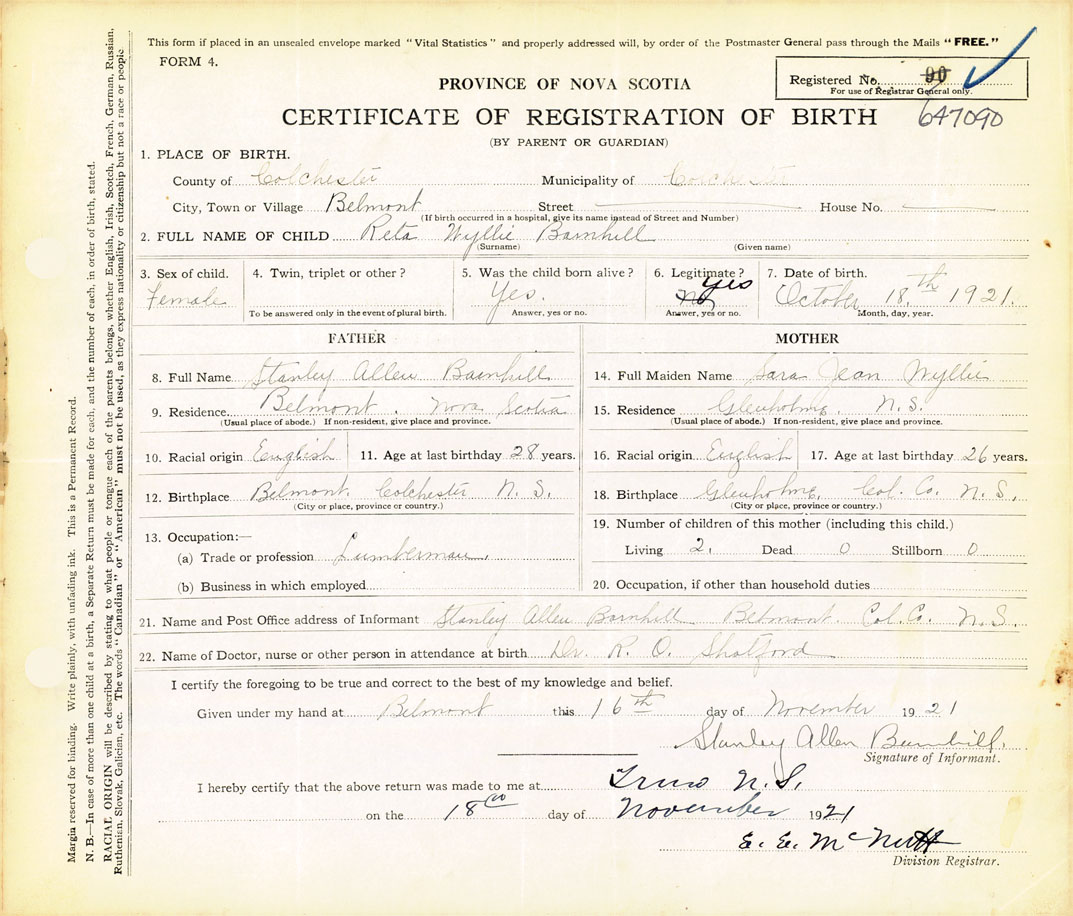 This form if placed in an unsealed envelope marked "Vital Statistics" and properly addressed will, by order of the Postmaster General pass through the Mails "FREE."
FORM 4.
PROVINCE OF NOVA SCOTIA
Registered No. 90
For use of Registrar General only.
647090
CERTIFICATE OF REGISTRATION OF BIRTH
(BY PARENT OR GUARDIAN)
1. PLACE OF BIRTH.
County of Colchester Municipality of Colchester
City, Town or Village Belmont Street House No.
(If birth occurred in a hospital, give its name instead of Street and Number)
2. FULL NAME OF CHILD Reta Wyllie Barnhill
(Surname) (Given name)
3. Sex of child. 4. Twin, triplet or other? 5. Was the child born alive? 6. Legitimate? 7. Date of birth.
Female Yes. No Yes October 18th 1921.
To be answered only in the event of plural birth. Answer, yes or no. Answer, yes or no. Month, day, year.
FATHER MOTHER
8. Full Name Stanley Allen Barnhill 14. Full Maiden Name Sara Jean Wyllie
9. Residence. Belmont. Nova Scotia 15. Residence Glenholme, N.S.
(Usual place of abode.) If non-resident, give place and province. (Usual place of abode.) If non-resident, give place and province.
10. Racial origin English 11. Age at last birthday 28 years. 16. Racial origin English 17. Age at last birthday 26 years.
12. Birthplace Belmont. Colchester N. S. 18. Birthplace Glenholme, Col. Co. N. S.
(City or place, province or country.) (City or place, province or country.)
13. Occupation:— 19. Number of children of this mother (including this child.)
(a) Trade or profession Lumberman. Living 2. Dead 0 Stillborn 0
(b) Business in which employed 20. Occupation, if other than household duties
21. Name and Post Office address of Informant Stanley Allen Barnhill Belmont. Col. Co. N.S.
22. Name of Doctor, nurse or other person in attendance at birth Dr. R. O. Shatford
I certify the foregoing to be true and correct to the best of my knowledge and belief.
Given under my hand at Belmont this 16th day of November 1921
Stanley Allen Barnhill.
Signature of Informant.
I hereby certify that the above return was made to me at Truro N.S.
on the 18 day of November 1921
E. E. McNutt
Division Registrar.
Margin reserved for binding. Write plainly, with unfading ink. This is a Permanent Record.
N. B.—In case of more than one child at a birth, a Separate Return must be made for each, and the number of each, in order of birth, stated.
RACIAL ORIGIN will be described by stating to what people or tongue each of the parents belongs, whether English, Irish, Scotch, French, German, Russian,
Ruthenian, Slovak, Galician, etc. The words "Canadian" or "American" must not be used, as they express nationality or citizenship but not a race or people